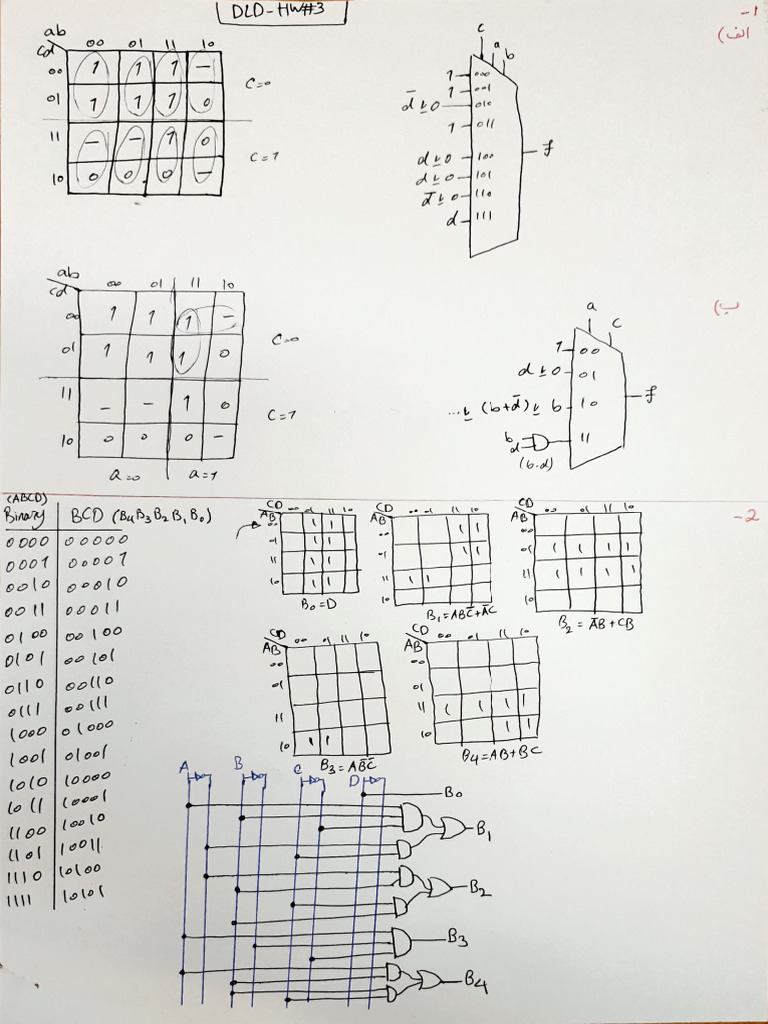 DLD-HW#3
1-
الف)
ab
cd
00 01 11 10
00 1 1 1 —
01 1 1 1 0
11 — — 1 0
10 0 0 0 —
C=0
C=1
c a b
1 000
1 001
d̅ یا 0 010
1 011
d یا 0 100
d یا 0 101
d̅ یا 0 110
d 111
f
ب)
ab
cd
00 01 11 10
00 1 1 1 —
01 1 1 1 0
11 — — 1 0
10 0 0 0 —
C=0
C=1
a=0 a=1
a c
1 00
d یا 0 01
... یا (b+d̅) یا b 10
b d 11
(b.d)
f
2-
(ABCD)
Binary BCD (B4B3B2B1B0)
0000 00000
0001 00001
0010 00010
0011 00011
0100 00100
0101 00101
0110 00110
0111 00111
1000 01000
1001 01001
1010 10000
1011 10001
1100 10010
1101 10011
1110 10100
1111 10101
CD
AB
00 01 11 10
00 1 1
01 1 1
11 1 1
10 1 1
B0=D
CD
AB
00 01 11 10
00 1 1
01 1 1
11 1 1
10
B1=ABC̅+A̅C
CD
AB
00 01 11 10
00
01 1 1 1 1
11 1 1 1 1
10
B2=A̅B+CB
CD
AB
00 01 11 10
00
01
11
10 1 1
B3=AB̅C̅
CD
AB
00 01 11 10
00
01
11 1 1 1 1
10 1 1
B4=AB+BC
A B C D
B0
B1
B2
B3
B4